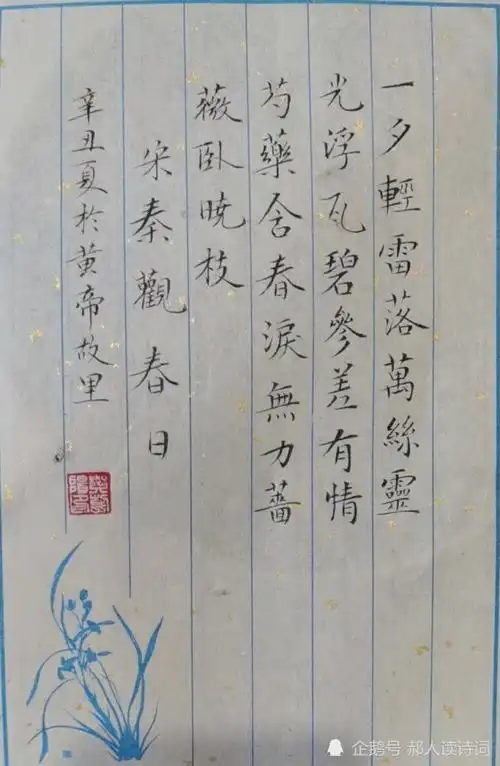 一夕輕雷落萬絲靈
光浮瓦碧參差有情
芍藥含春淚無力薔
薇卧曉枝
宋秦觀春日
辛丑夏於黄帝故里
企鹅号 郝人读诗词